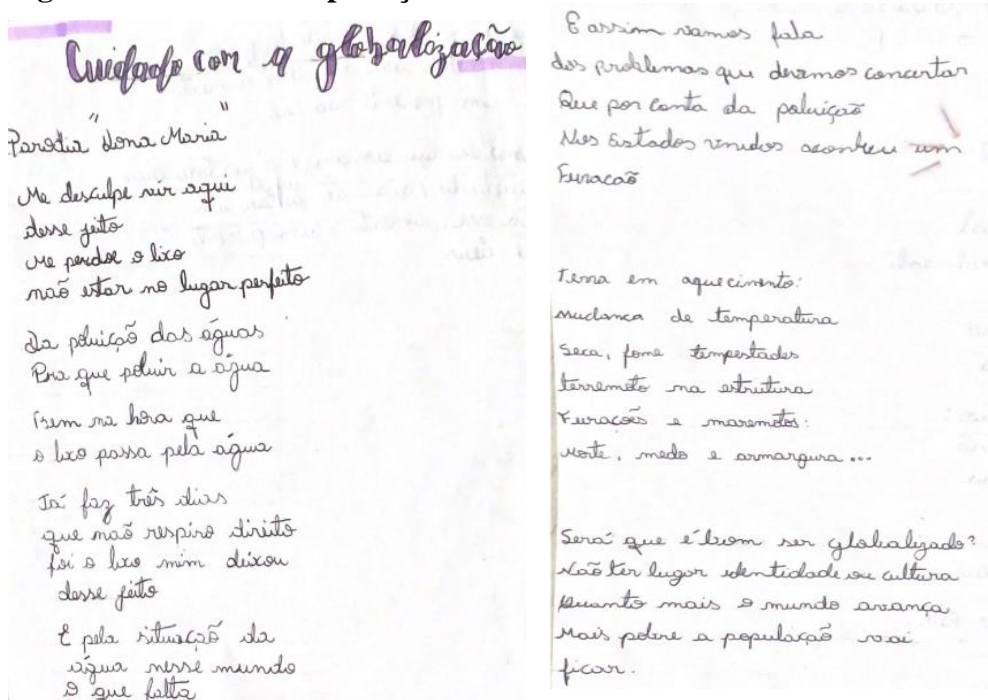 Cuidado com a globalização
Parodia "Dona Maria"
Me desculpe vir aqui
desse jeito
Me perdoe o lixo
naõ estar no lugar perfeito
Da poluiçaõ das águas
Pra que poluir a água
Bem na hora que
o lixo passa pela água
Já faz três dias
que naõ respiro direito
foi o lixo mim deixou
desse jeito
E pela situaçaõ da
água nesse mundo
o que falta
E assim vamos fala
dos problemas que devemos concertar
Que por conta da poluiçaõ
Nos Estados unidos aconteceu um
Furacaõ
Terra em aquecimento:
mudanca de temperatura
Seca, fome tempestades
terremoto na estrutura
Furacões e maremotos:
morte, medo e armargura...
Será que é bom ser globalizado?
Naõ ter lugar identidade ou cultura
Quanto mais o mundo avança
Mais pobre a populaçaõ vai
ficar.